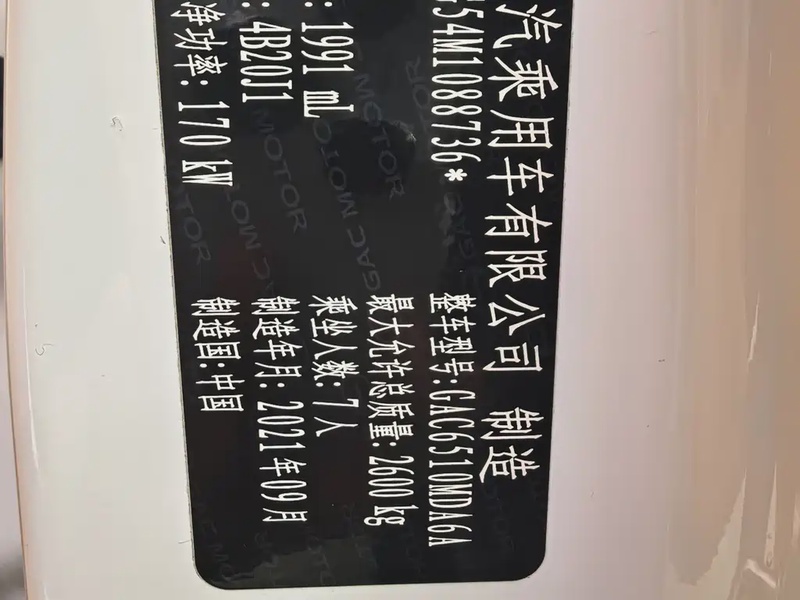 汽乘用车有限公司 制造
54M1088736* 整车型号:GAC6510MDA6A
最大允许总质量:2600 kg
: 1991 mL 乘坐人数:7人
: 4B20J1 制造年月: 2021年09月
净功率: 170 kW 制造国:中国
GAC MOTOR